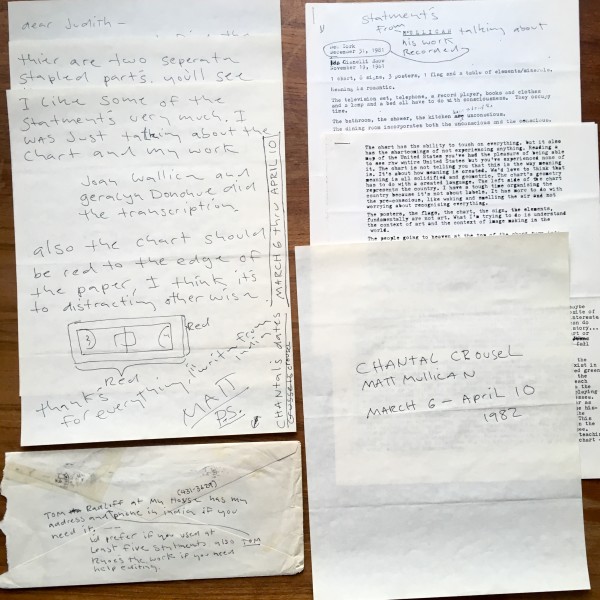 dear Judith –
thier are two seperate
stapled parts. you'll see
I like some of the
Statments very much. I
was Just talking about the
chart and my work
Joan Wallice and
geralyn Donohue did
the transcription
also the chart should
be red to the edge of
the paper, I think it's
to distracting otherwise
Red
Red
thanks
for everything, I'll write from
india
MATT
P.S.
Chantals dates MARCH 6 thru APRIL 10
(431-3629)
Tom Radloff at My House has my
address and phone in india if you
need it.
I'd prefer if you used at
least five statments also Tom
knows the work if you need
help editing.
Statment's
From MULLICAN talking about
his work
Recorded
December 31, 1981
November 19, 1981
1 chart, 6 signs, 3 posters, 1 flag and a table of elements/
Meaning is romantic.
The television set, telephone, a record player, books and clothes
and a lamp and a bed all have to do with consciousness. They occupy
time.
The bathroom, the shower, the kitchen are unconscious.
The dining room incorporates both the unconscious and the
The chart has the ability to touch on everything. But it also
has the shortcomings of not experiencing anything. Reading a
map of the United States you've had the pleasure of being able
to see the United States but you've experienced none of
it. The chart is not telling you that this is the way meaning
is. It's about how meaning is created. We'd love to think that
meaning is all solidified and geometric. The chart's geometry
has to do with a created ideology. The left side of the chart
represents the country. I have a tough time organizing the
country because it's not about labels. It has more to do with
the pre-conscious, like waking and smelling the air and not
worrying about recognizing everything.
The posters, the flags, the chart, the sign, the elements,
fundamentally are not art. What I'm trying to do is understand
the context of art and the context of image making in the
world.
The people going to heaven at the top of
CHANTAL CROUSEL
MATT MULLICAN
MARCH 6 – April 10
1982